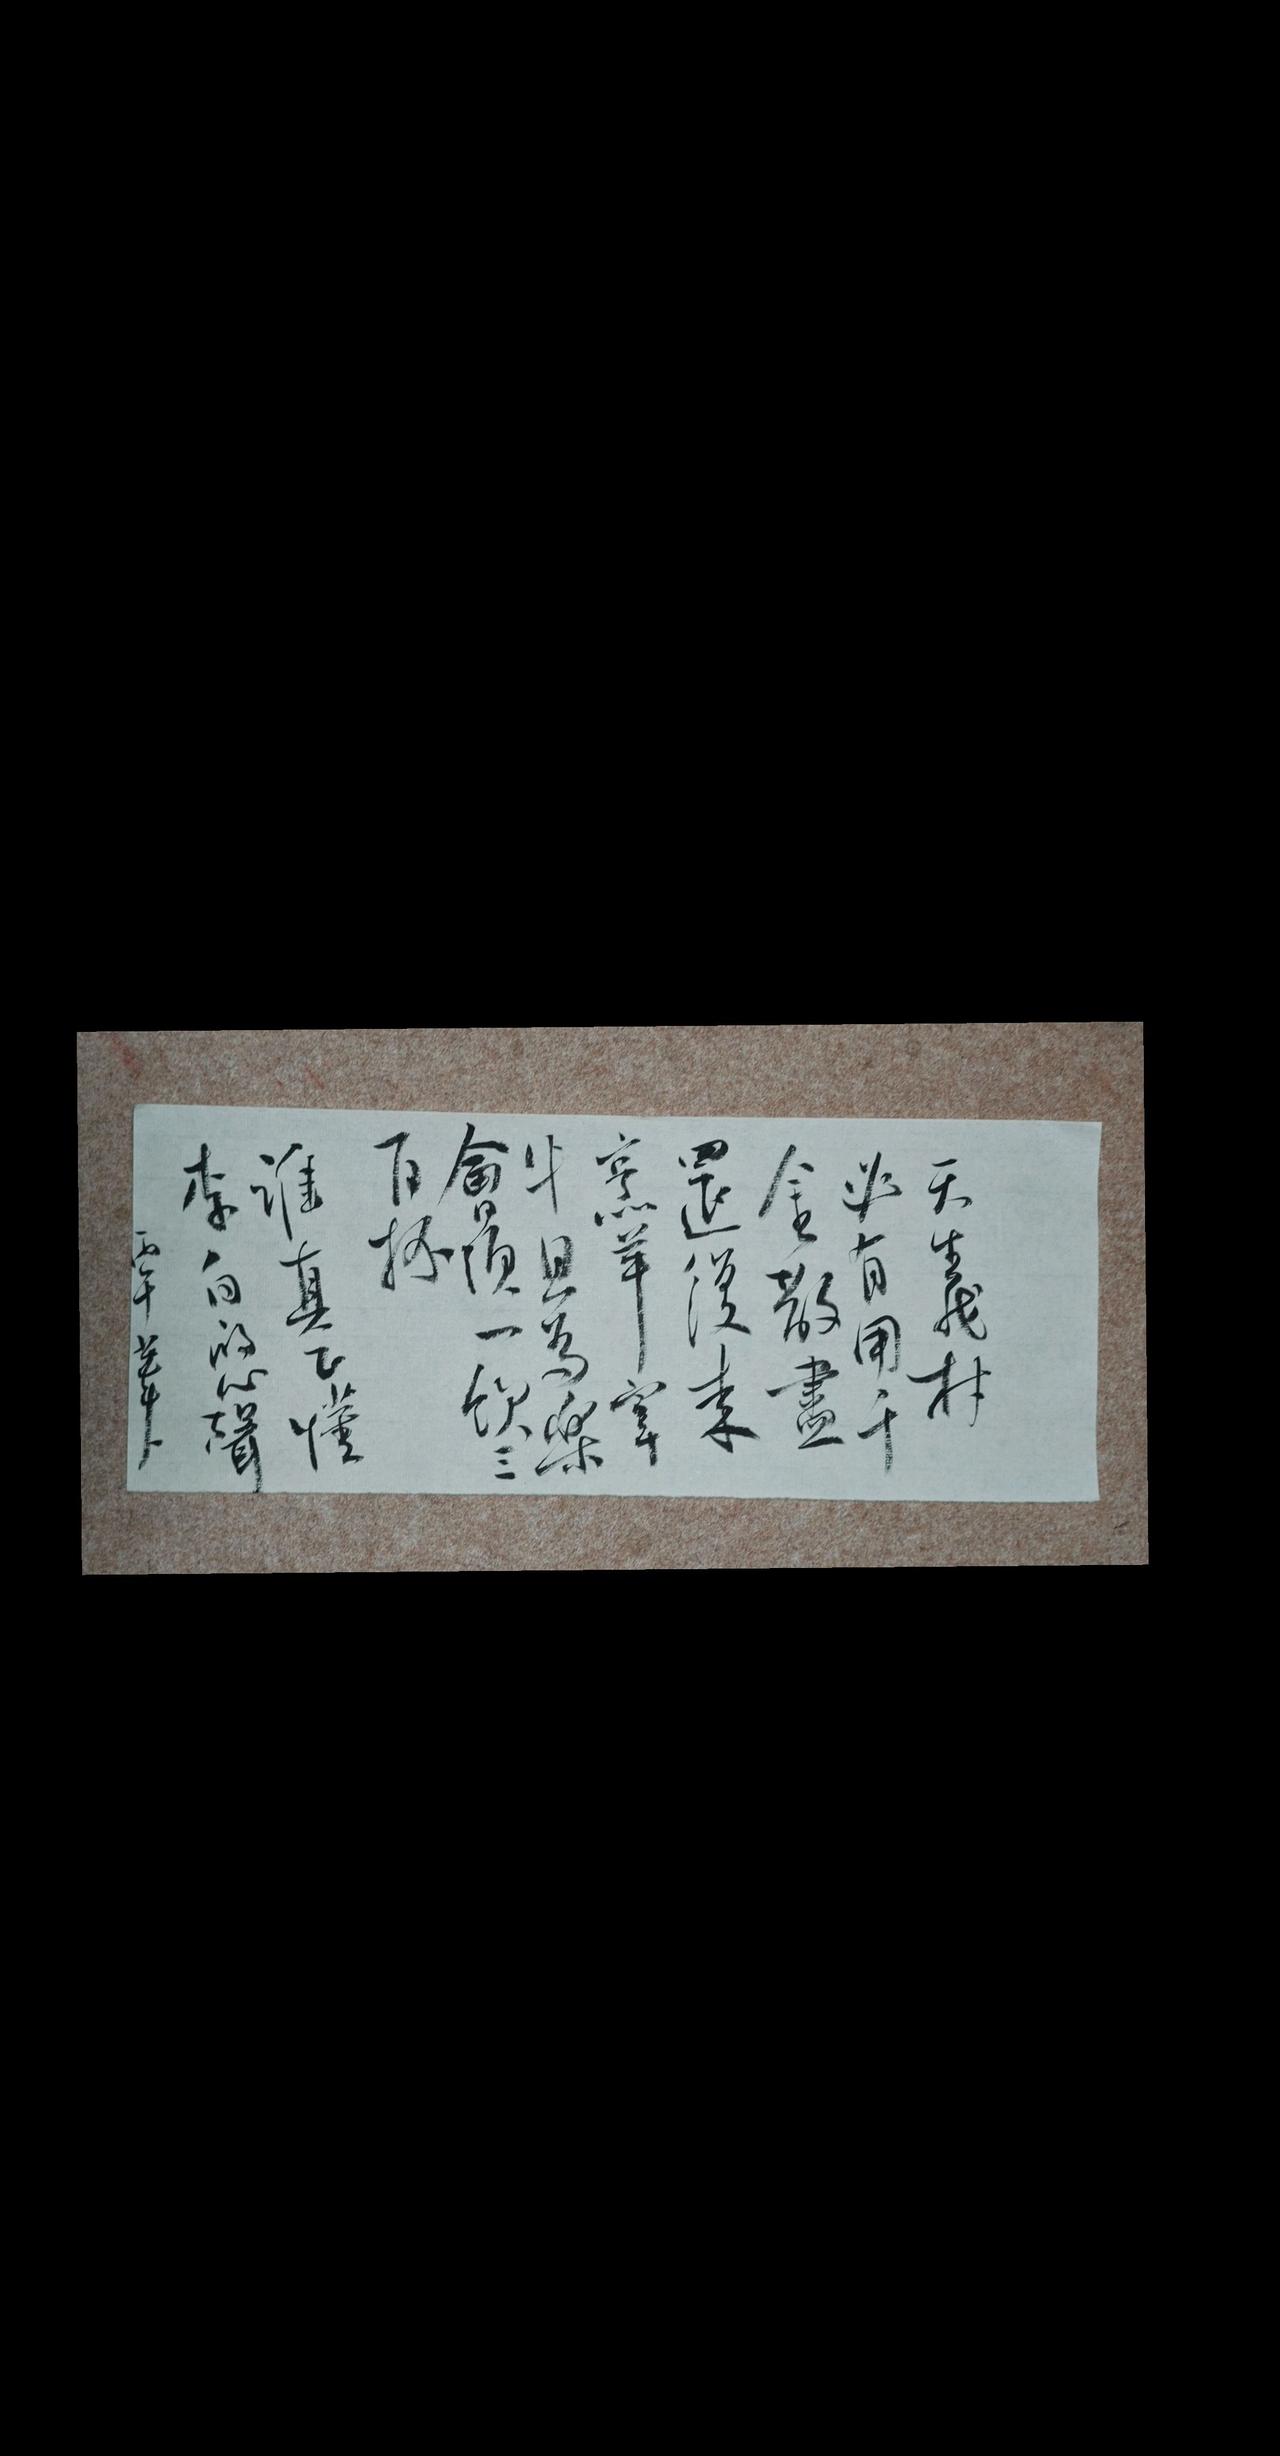 天生我材
必有用千
金散盡
還復來
烹羊宰
牛且為樂
會須一飲三
百杯
誰真正懂
李白的心聲
丙午